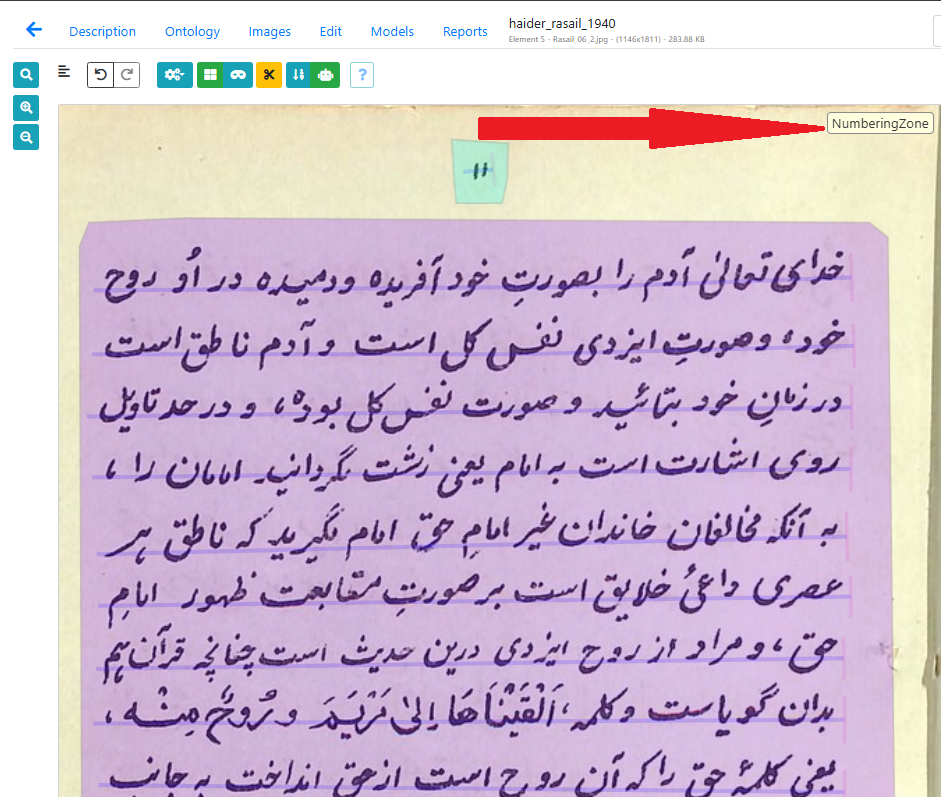 Description Ontology Images Edit Models Reports haider_rasail_1940
Element 5 - Rasail_06_2.jpg - (1146x1811) - 283.88 KB
NumberingZone
۱۱
خدای تعالیٰ آدم را بصورتِ خود آفریده ودمیده در اُو روح
خود، وصورتِ ایزدی نفس کل است و آدم ناطق است
در زمانِ خود بتمائید و صورت نفس کل بوده، و درحد تاویل
روی اشارت است به امام یعنی زشت مگردانید امامان را،
به آنکه مخالفان خاندان غیر امامِ حق امام مگیرید که ناطق هر
عصری داعیٔ خلایق است بر صورتِ متابعت ظهور امامِ
حق، و مراد از روح ایزدی درین حدیث است چنانچه قرآن هم
بدان گویاست و کلمہ، اَلْقَیْنَاهَا اِلیٰ مَرْیَمَ و رُوحٌ مِنْه،
یعنی کلمهٔ حق را که آن روح است از حق انداخت به جانب